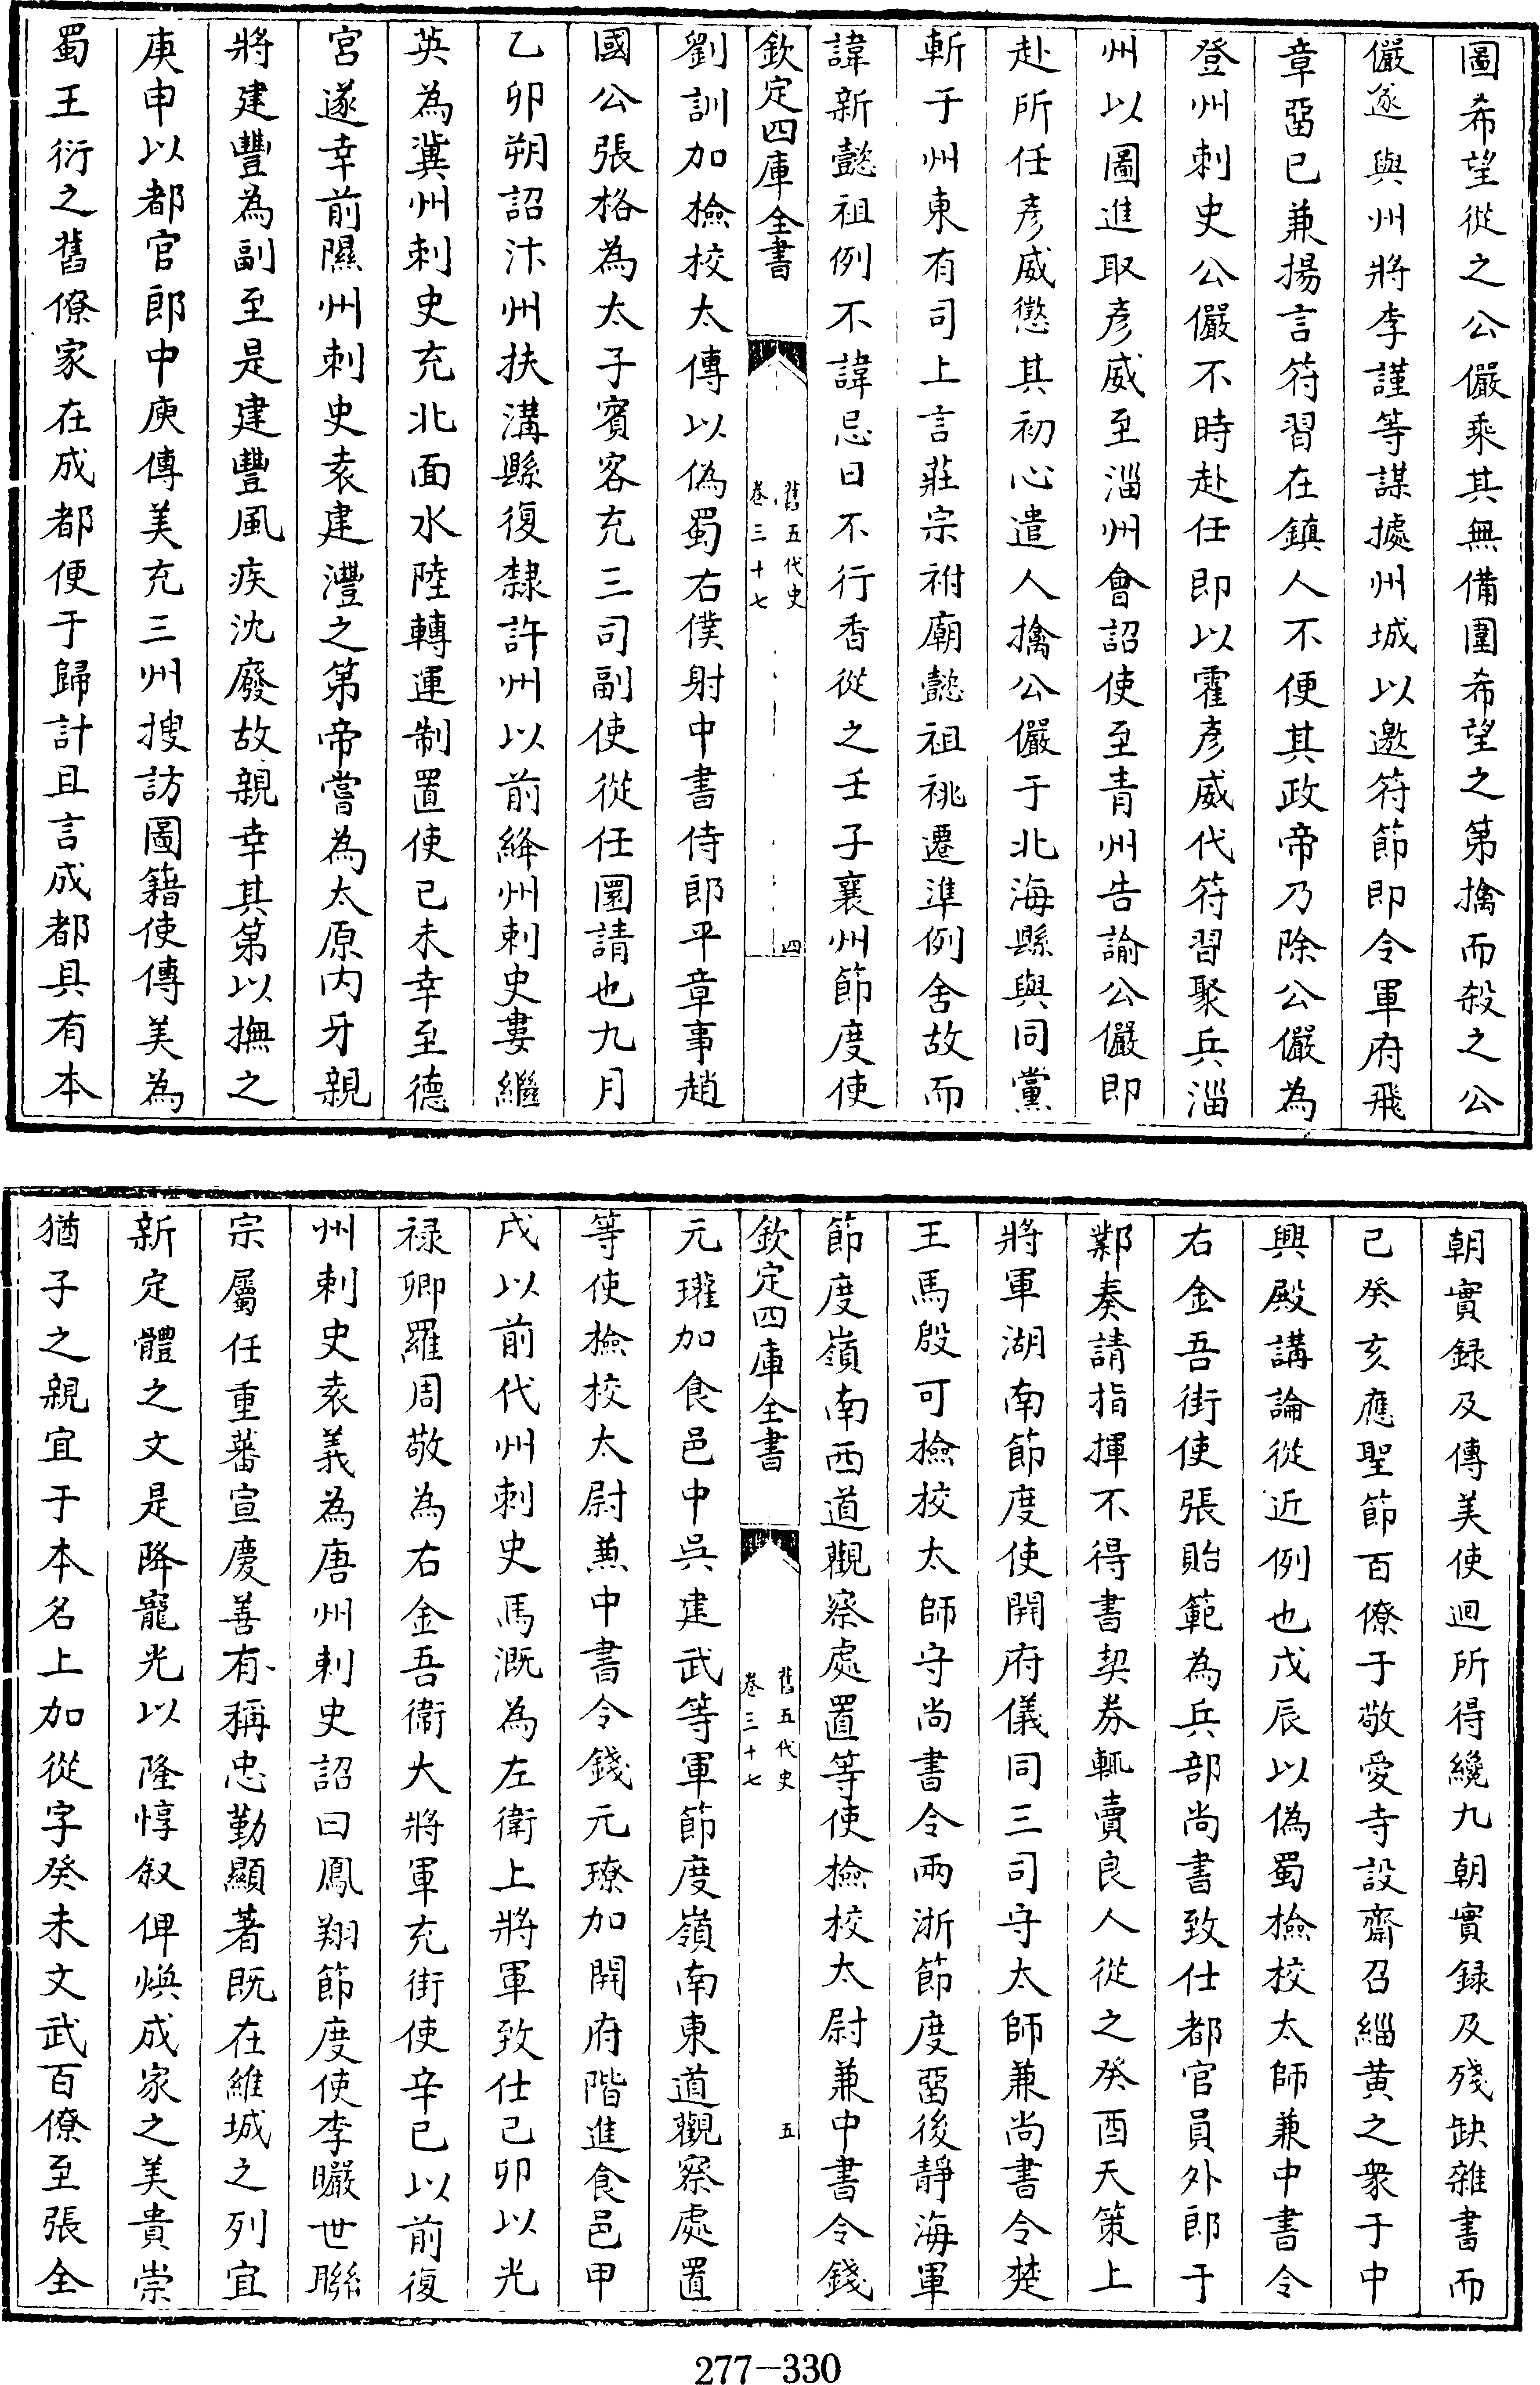 圖希望從之公儼乘其無備圍希望之第擒而殺之公
儼遂與州將李謹等謀據州城以邀符節即令軍府飛
章留已兼揚言符習在鎮人不便其政帝乃除公儼為
登州刺史公儼不時赴任即以霍彥威代符習聚兵淄
州以圖進取彥威至淄州會詔使至青州告諭公儼即
赴所任彥威懲其初心遣人擒公儼于北海縣與同黨
斬于州東有司上言莊宗祔廟懿祖祧遷準例舍故而
諱新懿祖例不諱忌日不行香從之壬子襄州節度使
欽定四庫全書
舊五代史
卷三十七
四
劉訓加檢校太傅以偽蜀右僕射中書侍郎平章事趙
國公張格為太子賓客充三司副使從任圜請也九月
乙卯朔詔汴州扶溝縣復隸許州以前絳州刺史婁繼
英為冀州刺史充北面水陸轉運制置使己未幸至德
宮遂幸前隰州刺史袁建灃之第帝嘗為太原内牙親
將建豐為副至是建豐風疾沈廢故親幸其第以撫之
庚申以都官郎中庾傳美充三州搜訪圖籍使傳美為
蜀王衍之舊僚家在成都便于歸計且言成都具有本
朝實録及傳美使迴所得纔九朝實録及殘缺雜書而
已癸亥應聖節百僚于敬愛寺設齋召緇黄之衆于中
興殿講論從近例也戊辰以偽蜀檢校太師兼中書令
右金吾街使張貽範為兵部尚書致仕都官員外郎于
鄴奏請指揮不得書契券輒賣良人從之癸酉天策上
將軍湖南節度使開府儀同三司守太師兼尚書令楚
王馬殷可檢校太師守尚書令兩浙節度留後靜海軍
節度嶺南西道觀察處置等使檢校太尉兼中書令錢
欽定四庫全書
舊五代史
卷三十七
五
元瓘加食邑中吳建武等軍節度嶺南東道觀察處置
等使檢校太尉兼中書令錢元璙加開府階進食邑甲
戌以前代州刺史馬溉為左衛上將軍致仕己卯以光
禄卿羅周敬為右金吾衛大將軍充街使辛巳以前復
州刺史袁義為唐州刺史詔曰鳳翔節度使李曮世聯
宗屬任重蕃宣慶善有稱忠勤顯著既在維城之列宜
新定體之文是降寵光以隆惇叙俾煥成家之美貴崇
猶子之親宜于本名上加從字癸未文武百僚至張全
277-330